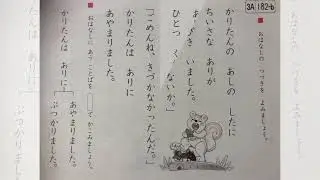 3A 182-b
おはなしの つづきを よみましょう。
かりたんの あしの したに
ちいさな ありが
いました。
ひとつ ないか。」
「ごめんね、きづかなかったんだ。」
かりたんは ありに
あやまりました。
おはなしに あう ことばを で かこみましょう。
かりたんは ありに
あやまりました。
ぶつかりました。